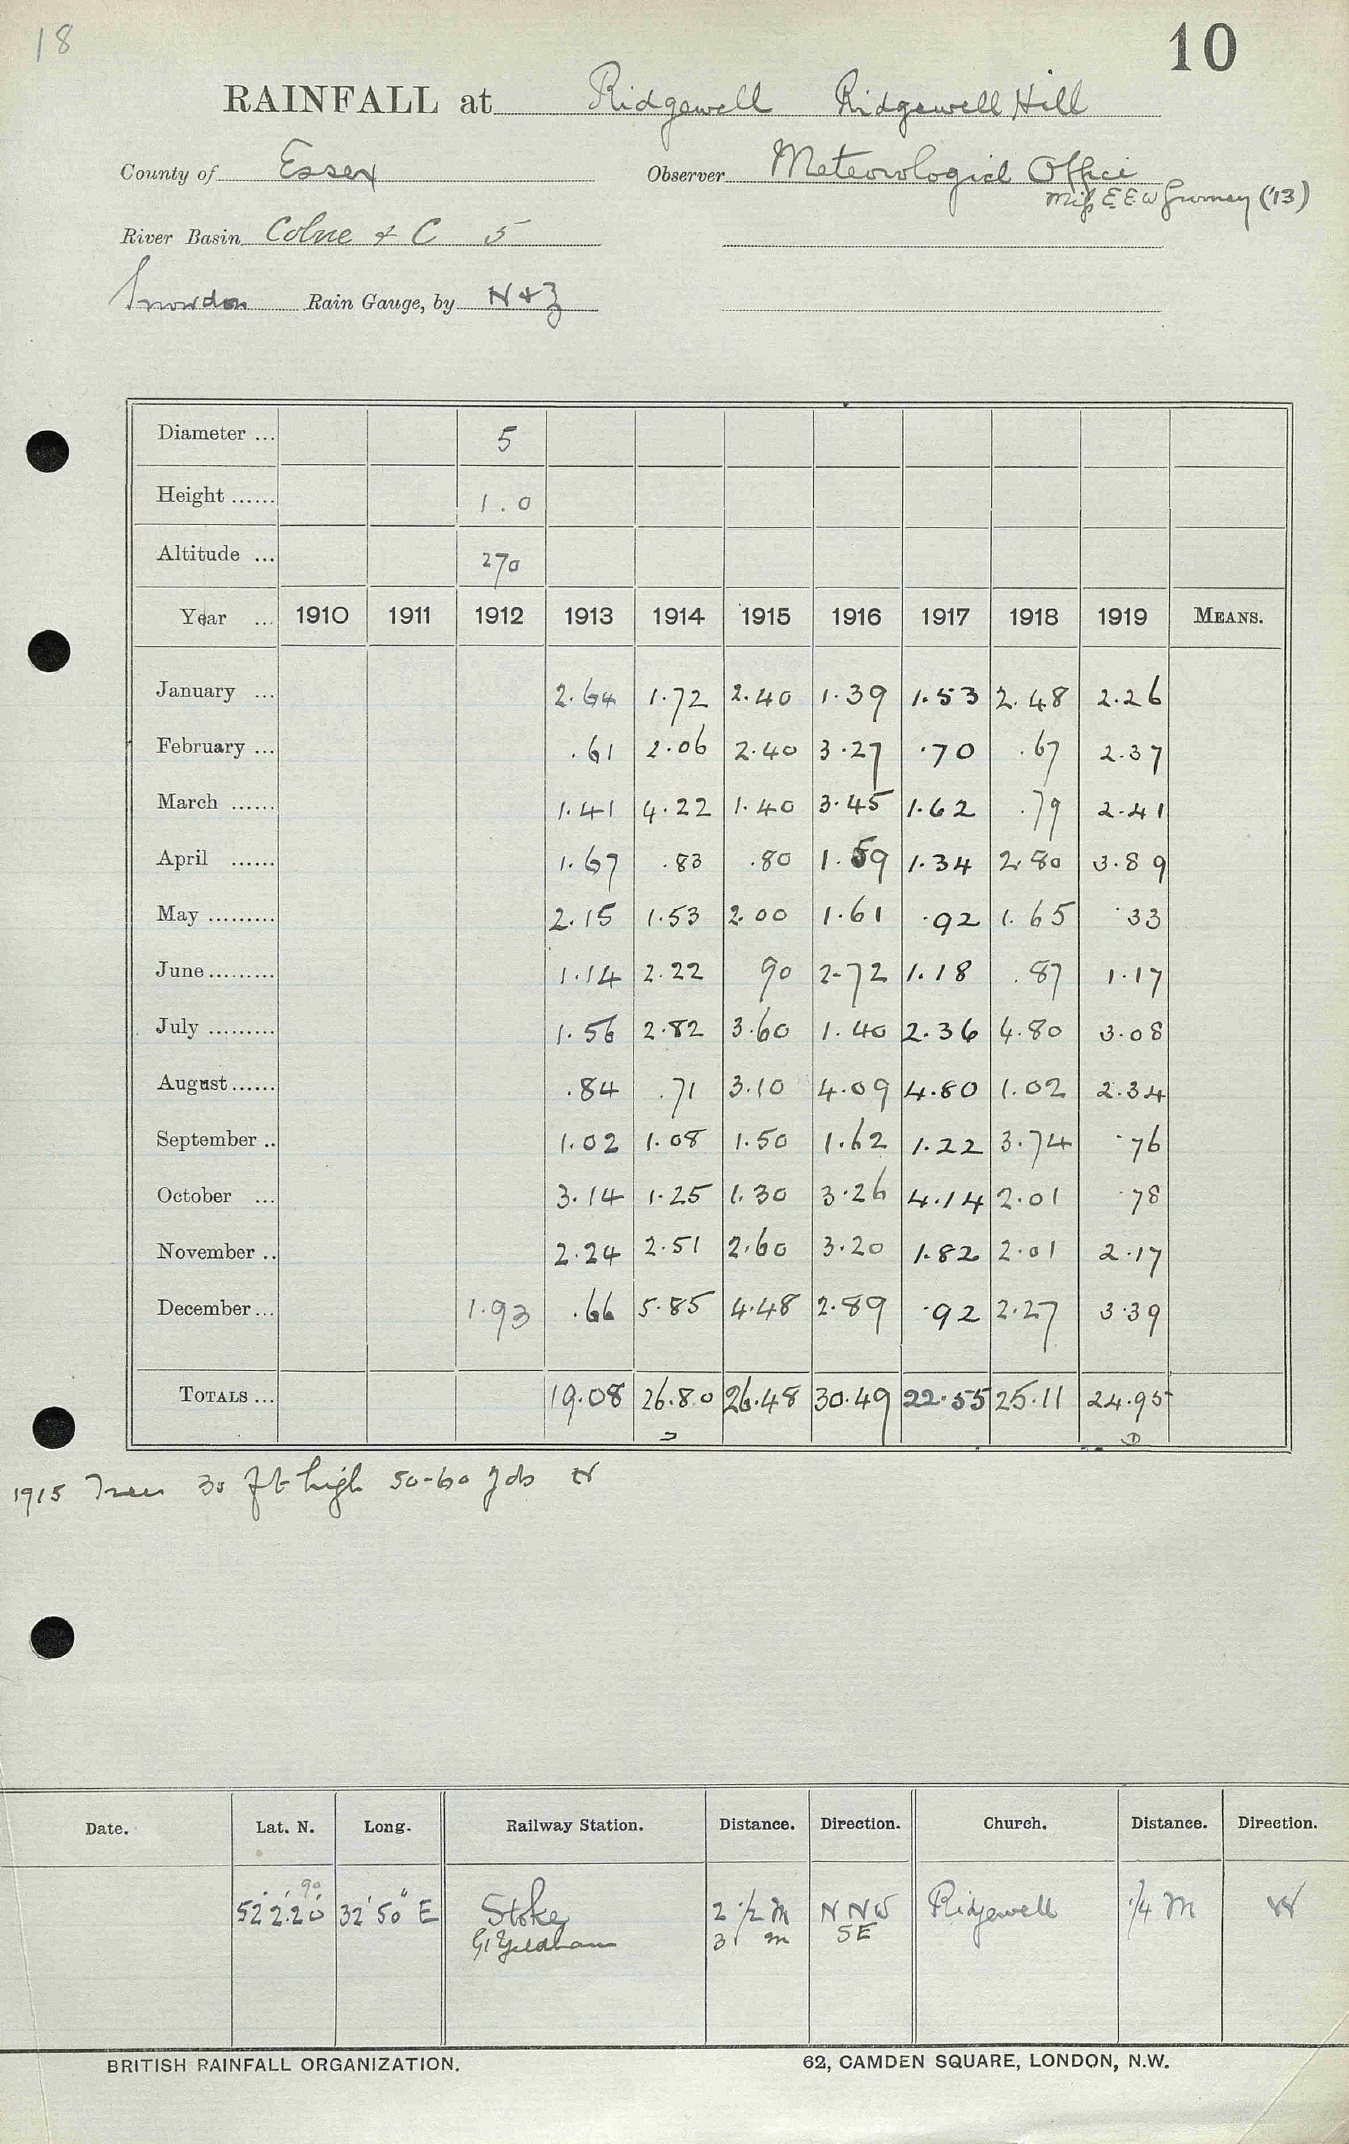 18
10
RAINFALL at Ridgewell Ridgewell Hill
County of Essex Observer Meteorological Office
Miss E E W Gurney ('13)
River Basin Colne & C 5
Snowdon Rain Gauge, by N & Z
Diameter ... 5
Height ...... 1.0
Altitude ... 270
Year ... 1910 1911 1912 1913 1914 1915 1916 1917 1918 1919 MEANS.
January ... 2.64 1.72 2.40 1.39 1.53 2.48 2.26
February ... .61 2.06 2.40 3.27 .70 .67 2.37
March ...... 1.41 4.22 1.40 3.45 1.62 .79 2.41
April ...... 1.67 .83 .80 1.59 1.34 2.80 3.89
May ......... 2.15 1.53 2.00 1.61 .92 1.65 .33
June ......... 1.14 2.22 90 2.72 1.18 .87 1.17
July ......... 1.56 2.82 3.60 1.40 2.36 4.80 3.08
August ...... .84 .71 3.10 4.09 4.80 1.02 2.34
September .. 1.02 1.08 1.50 1.62 1.22 3.74 .76
October ... 3.14 1.25 1.30 3.26 4.14 2.01 .78
November .. 2.24 2.51 2.60 3.20 1.82 2.01 2.17
December ... 1.93 .66 5.85 4.48 2.89 .92 2.27 3.39
TOTALS ... 19.08 26.80 26.48 30.49 22.55 25.11 24.95
1915 Trees 30 ft high 50-60 yds N
Date. Lat. N. Long. Railway Station. Distance. Direction. Church. Distance. Direction.
90
52° 2' 20" 32' 50" E Stoke 2 1/2 M N NW Ridgewell 1/4 M W
Gt Yeldham 3 m SE
BRITISH RAINFALL ORGANIZATION. 62, CAMDEN SQUARE, LONDON, N.W.